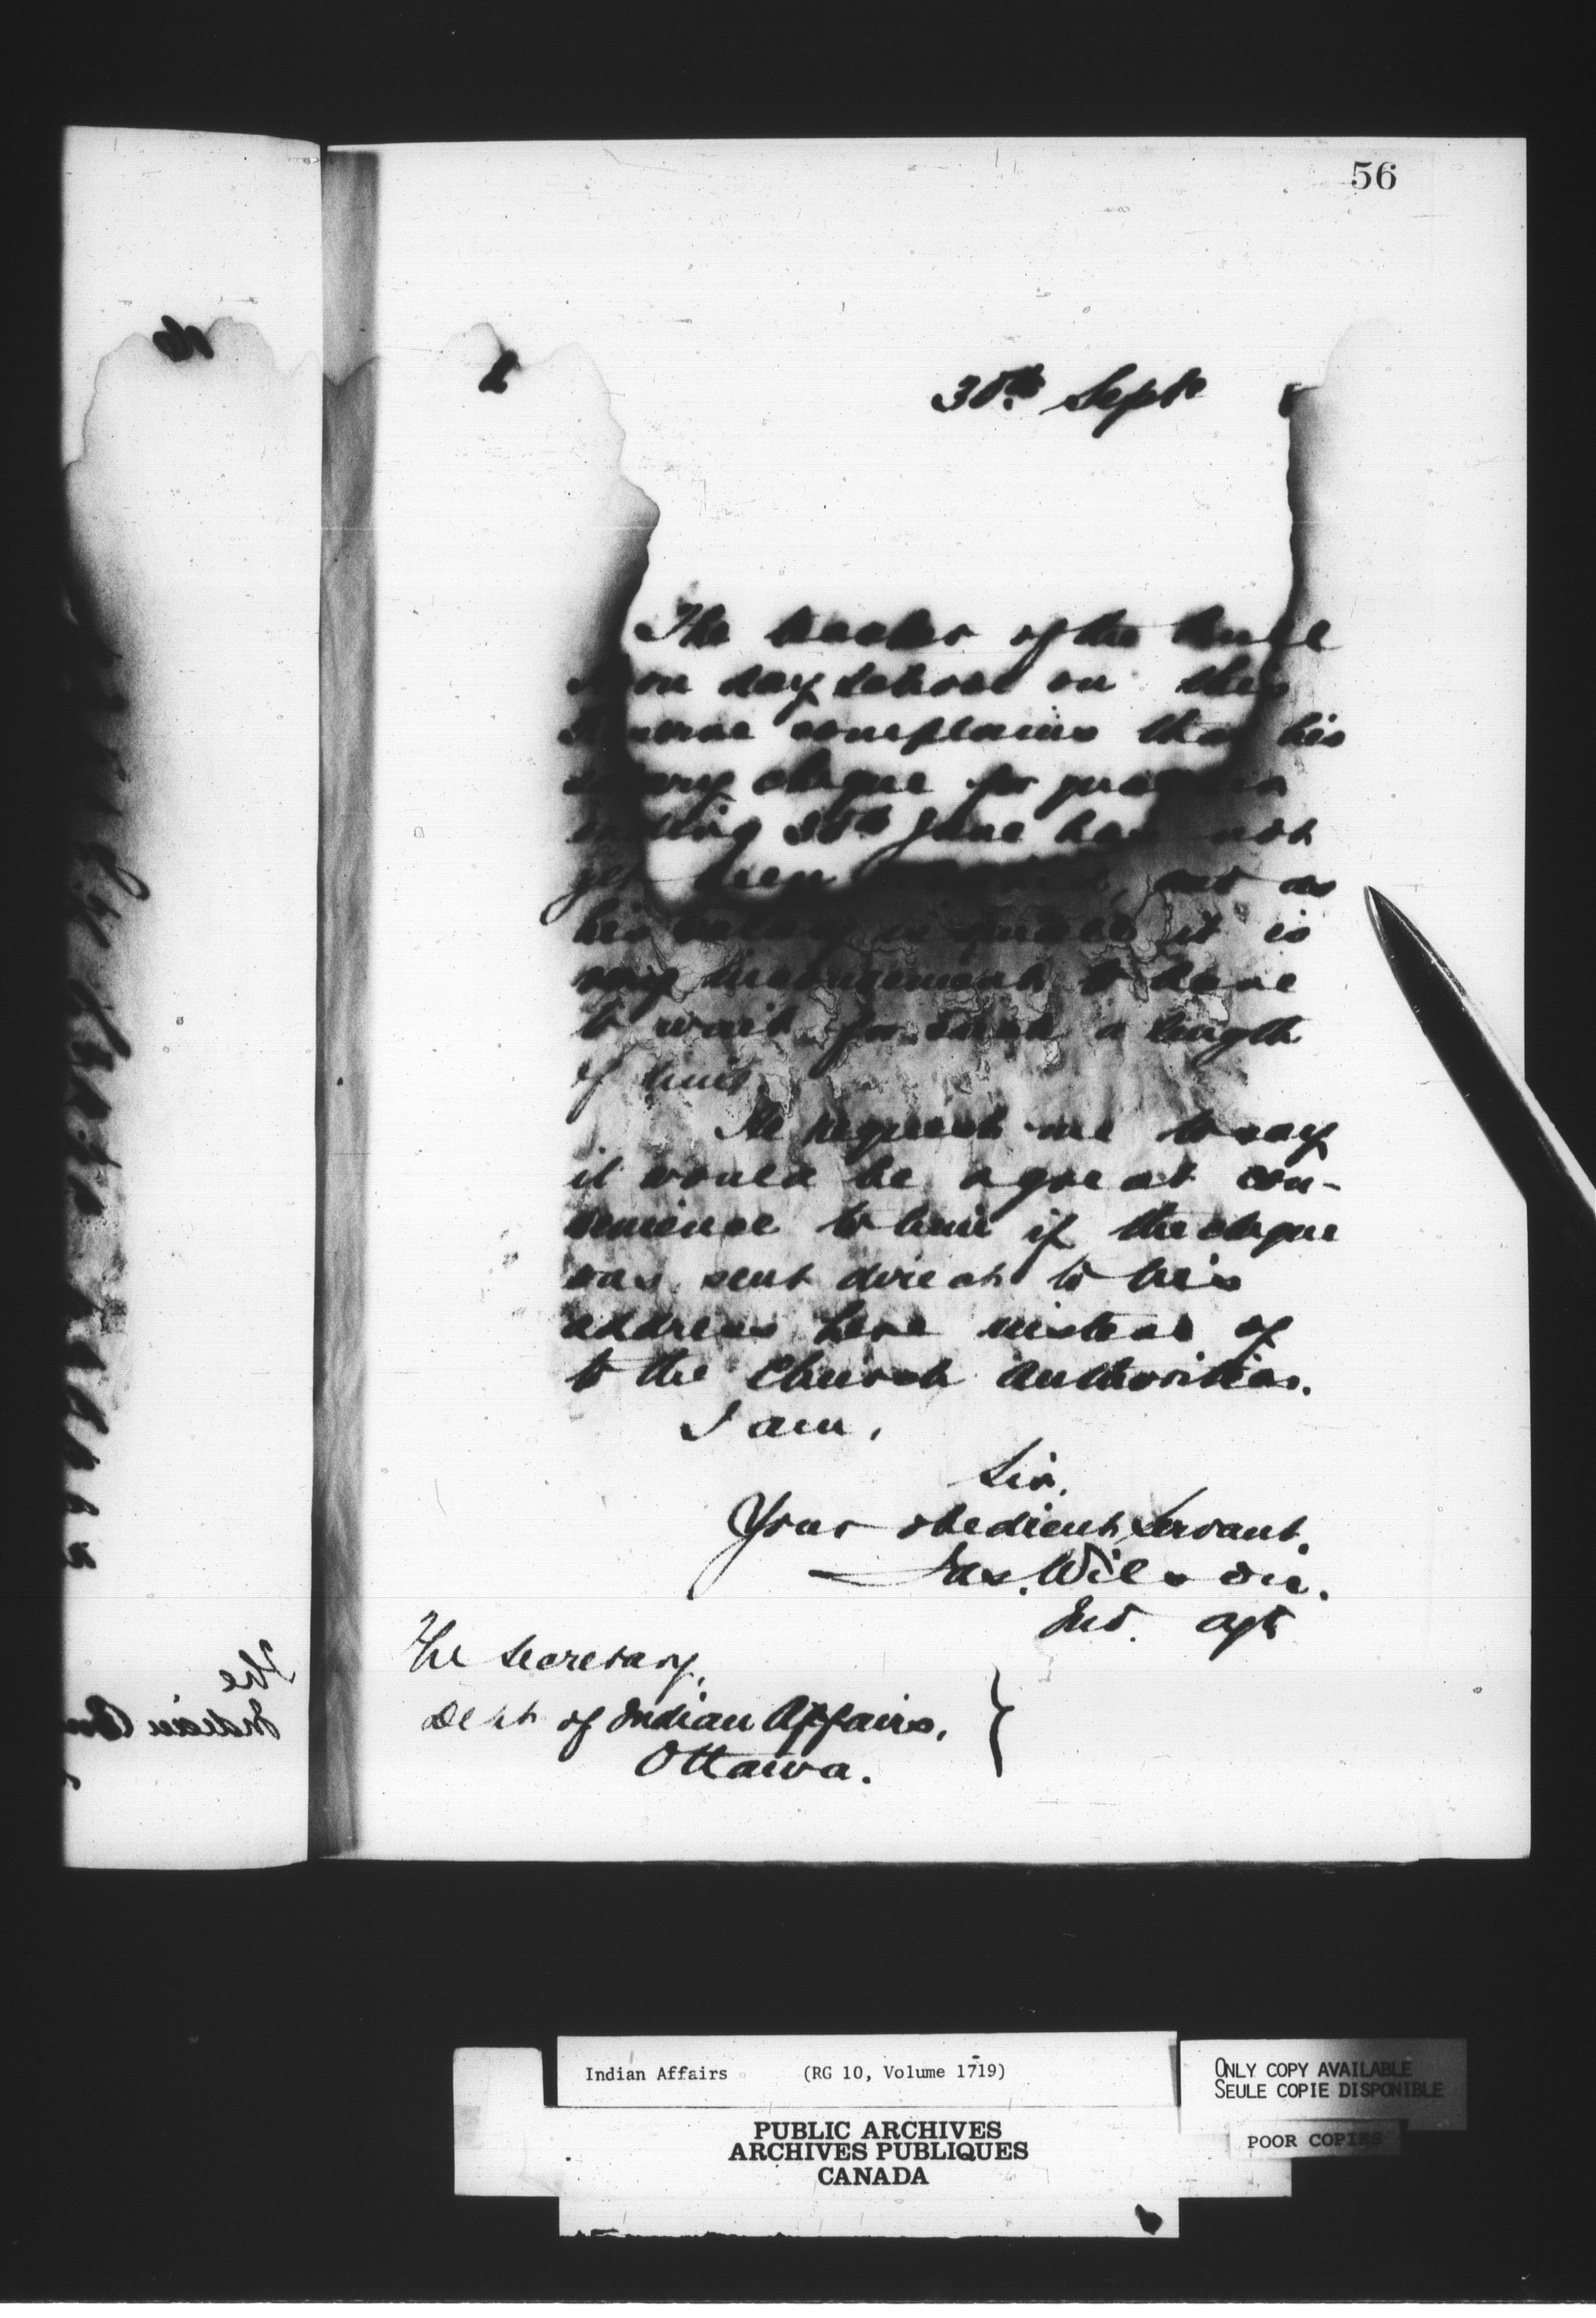 56
30th Sept
The teacher of the Bull
Horn day school on this
Reserve complains that his
salary cheque for quarter
ending 30th June has not
yet been received, and as
his salary is it is
very inconvenient to have
to wait for such a length
of time.
He requests me to say
it would be a great con-
venience to him if the cheque
was sent direct to his
address here instead of
to the Church Authorities.
I am,
Sir,
Your obedient Servant,
Jas. Wilson.
Ind. Agt
The Secretary,
Dept of Indian Affairs,
Ottawa.
The
Indian
Indian Affairs (RG 10, Volume 1719)
PUBLIC ARCHIVES
ARCHIVES PUBLIQUES
CANADA
ONLY COPY AVAILABLE
SEULE COPIE DISPONIBLE
POOR COPIES